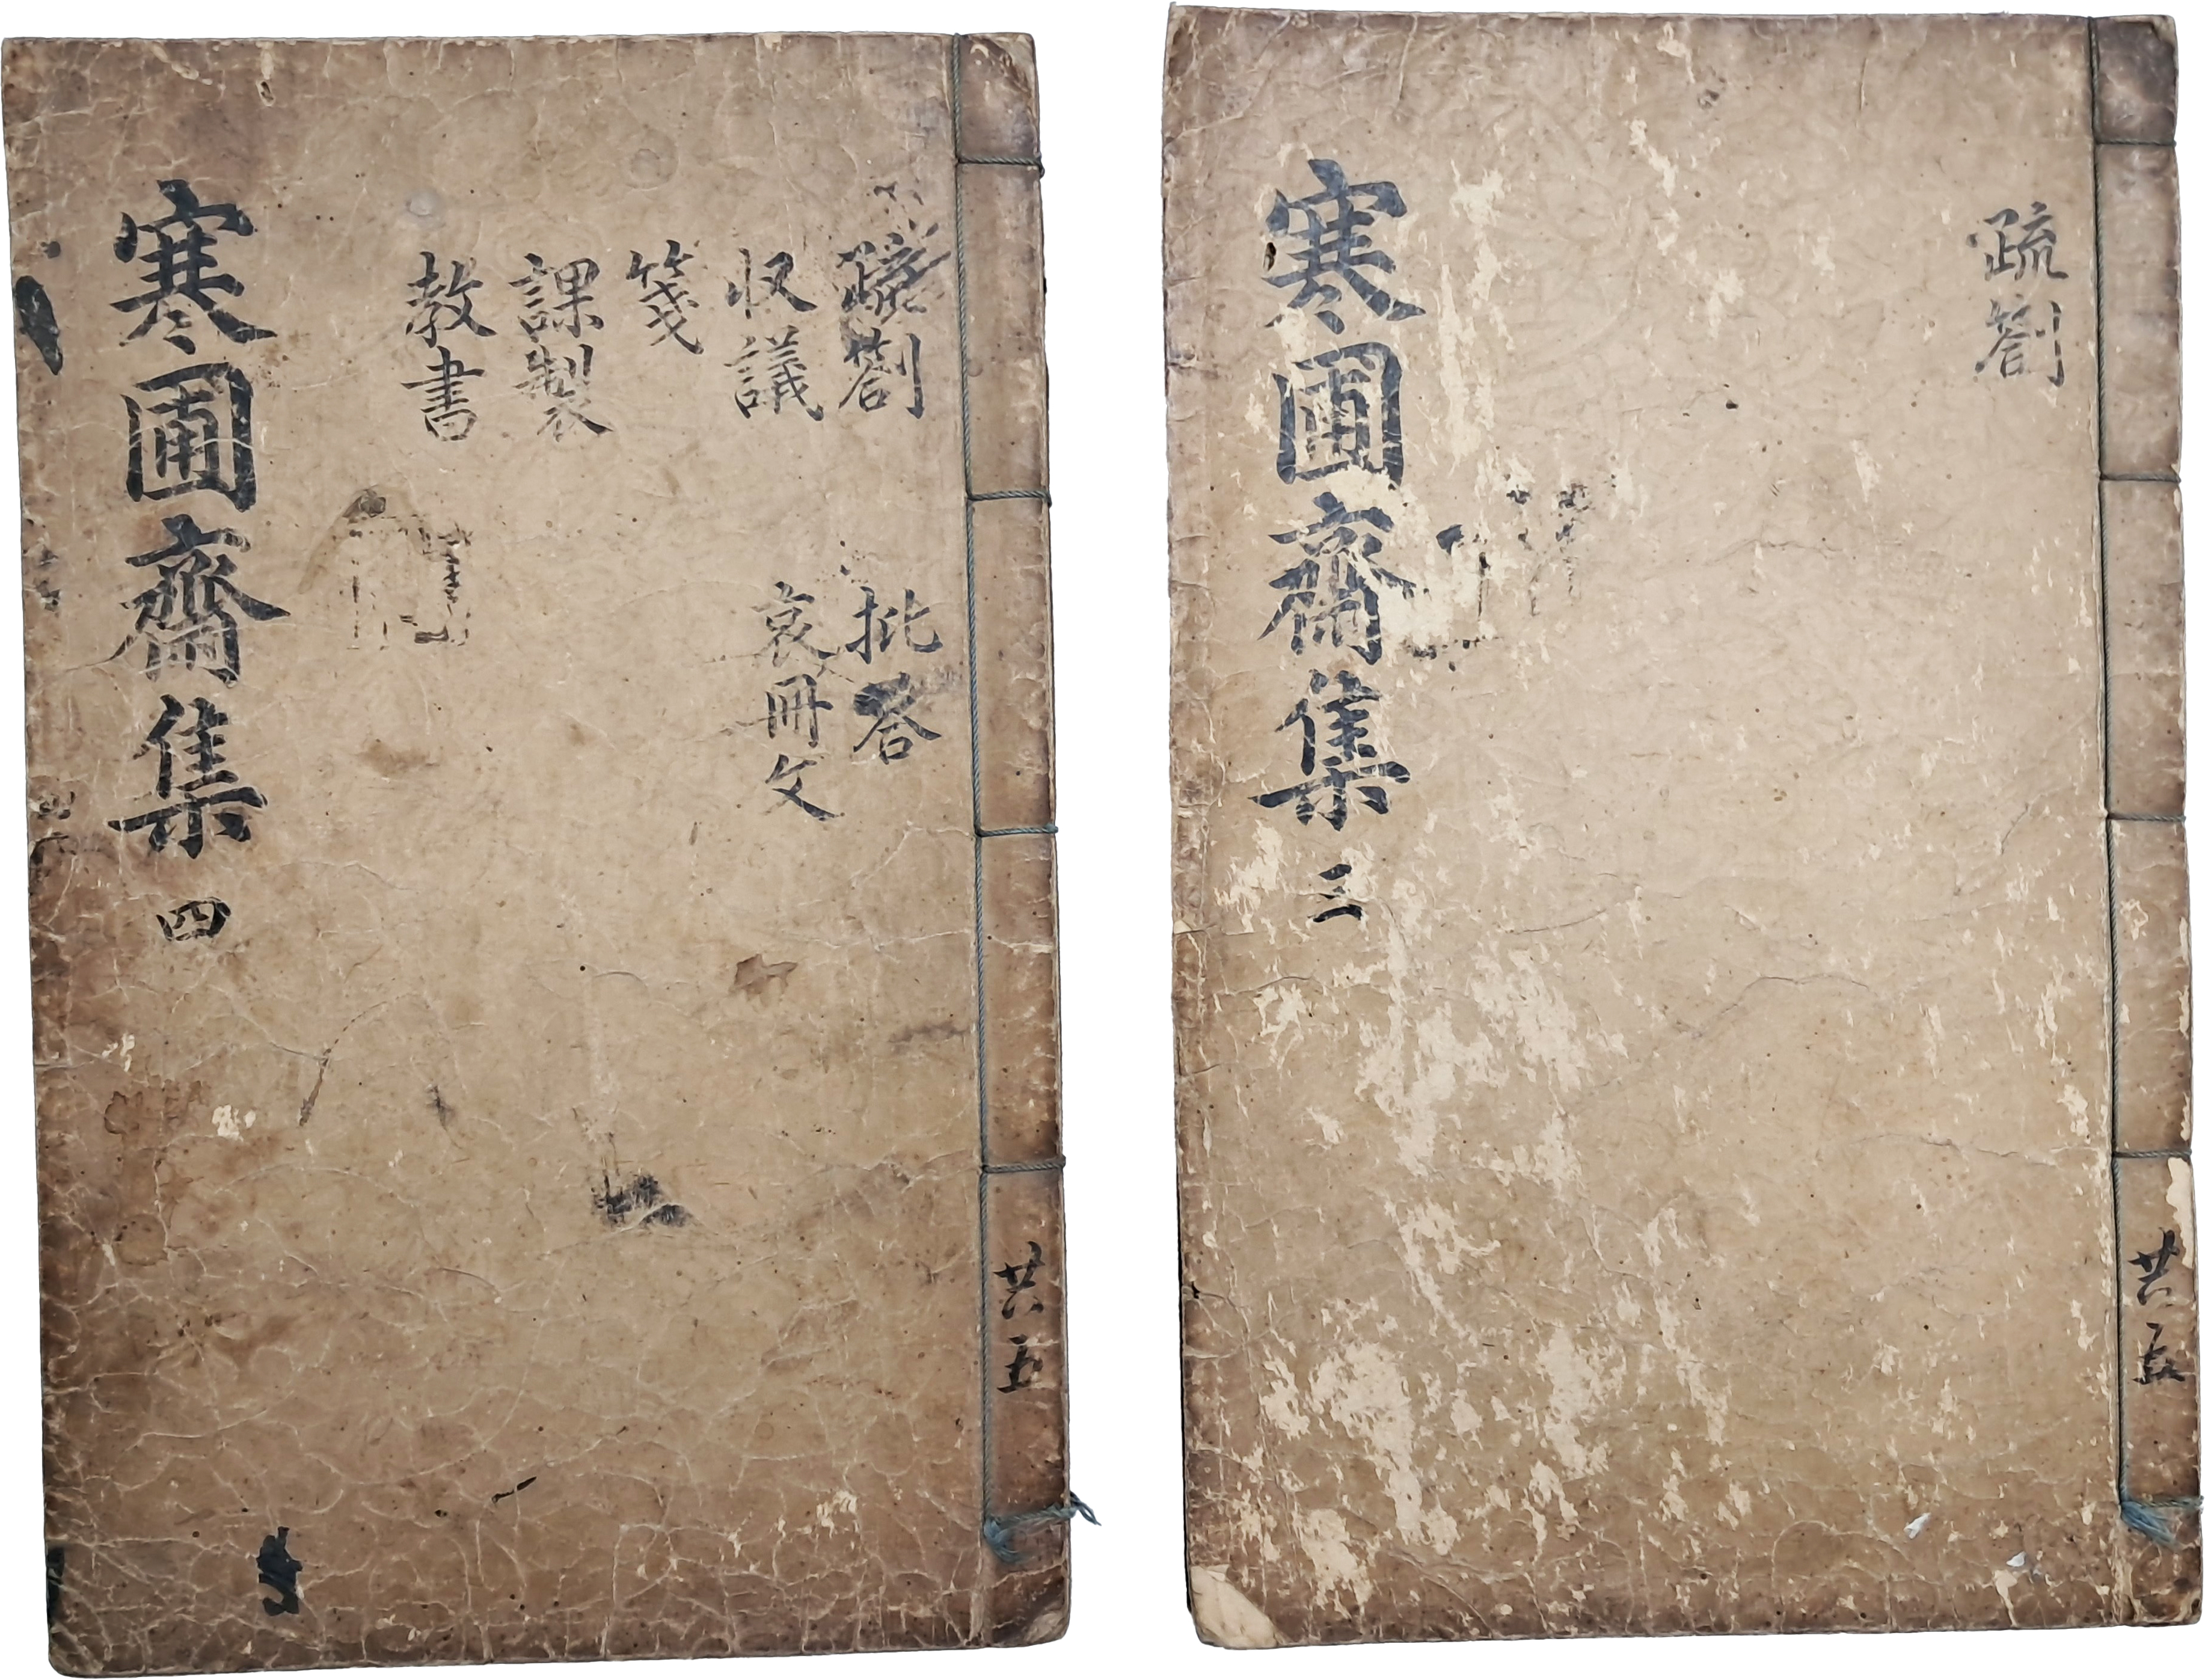 疏箚
寒圃齋集 三
共五
疏箚
収議
箋
課製
教書
批答
哀冊文
寒圃齋集 四
共五